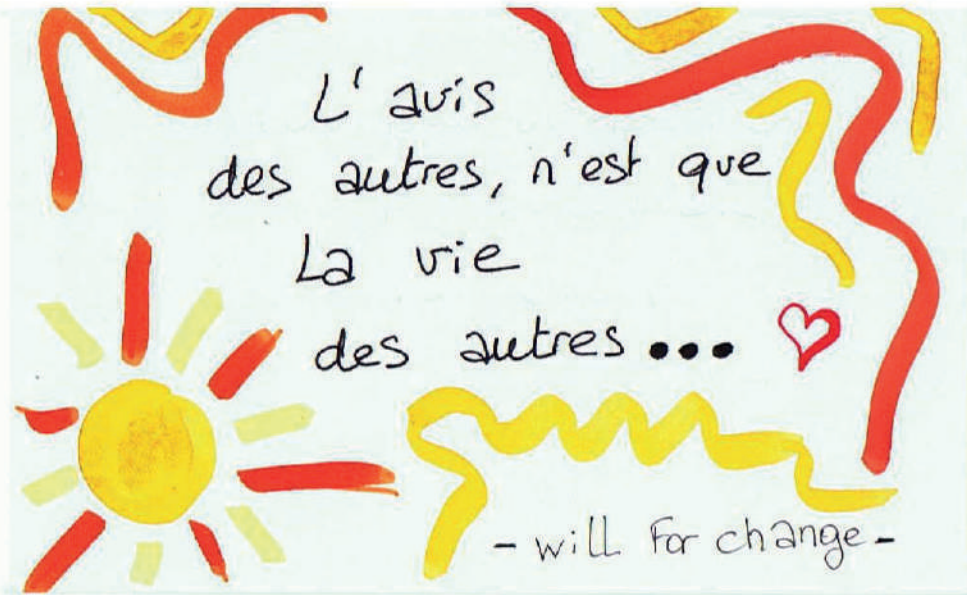 L'avis
des autres, n'est que
La vie
des autres...
- will For change -